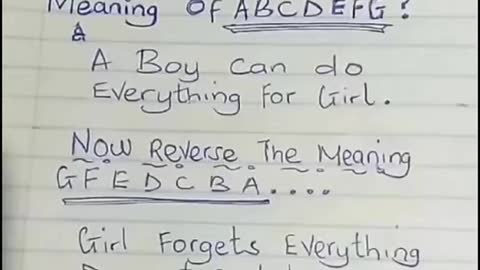 Meaning OF ABCDEFG?
A
A Boy Can do
Everything For Girl.
Now Reverse The Meaning
GFEDCBA....
Girl Forgets Everything